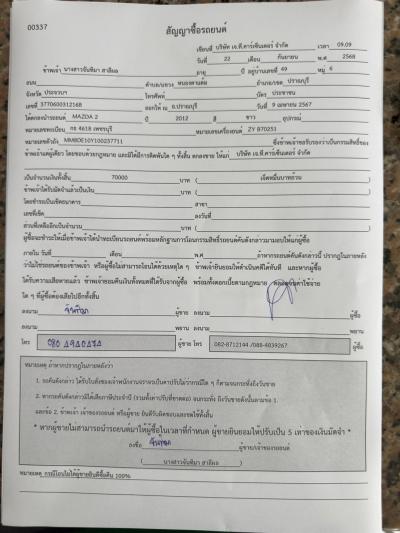 00337
สัญญาซื้อรถยนต์
เขียนที่ บริษัท เจ.ที.คาร์เซ็นเตอร์ จำกัด เวลา 09.09
วันที่ 22 เดือน กันยายน พ.ศ 2568
ข้าพเจ้า นางสาวจันทิมา สาลีผล อายุ ปี อยู่บ้านเลขที่ 49 หมู่ 6
ถนน ตำบล/แขวง หนองตาแต้ม อำเภอ/เขต ปราณบุรี
จังหวัด ประจวบฯ โทรศัพท์ บัตร ประชาชน
เลขที่ 3770600312168 ออกให้ ณ อ.ปราณบุรี วันที่ 9 เมษายน 2567
ได้ตกลงนำรถยนต์ MAZDA 2 ปี 2012 สี ขาว อุปกรณ์
หมายเลขทะเบียน กธ 4618 เพชรบุรี หมายเลขเครื่องยนต์ ZY 870251
หมายเลขตัวถัง MM8DE10Y100237711 ซึ่งข้าพเจ้าขอรับรองว่าเป็นกรรมสิทธิ์ของ
ข้าพเจ้าแต่ผู้เดียว โดยชอบด้วยกฎหมาย และมิได้มีภาระติดพันใด ๆ ทั้งสิ้น ตกลงขาย ให้แก่ บริษัท เจ.ที.คาร์เซ็นเตอร์ จำกัด
เป็นจำนวนเงินทั้งสิ้น 70000 บาท ( เจ็ดหมื่นบาทถ้วน )
ข้าพเจ้าได้รับมัดจำแล้วเป็นเงิน บาท ( )
โดยชำระเป็นเช็คธนาคาร สาขา
เลขที่เช็ค ลงวันที่
ส่วนที่เหลืออีกเป็นจำนวน บาท ( )
ผู้ซื้อจะชำระให้เมื่อข้าพเจ้าได้นำทะเบียนรถยนต์พร้อมหลักฐานการโอนกรรมสิทธิ์รถยนต์คันดังกล่าวมามอบให้แก่ผู้ซื้อ
ภายใน วันที่ เดือน พ.ศ ถ้าหากรถยนต์คันดังกล่าวนี้ ปรากฏภายหลัง
ว่าไม่ใช่รถยนต์ของข้าพเจ้า หรือผู้ซื้อไม่สามารถโอนได้ด้วยเหตุใด ๆ ข้าพเจ้ายินยอมให้ดำเนินคดีได้ทันที และหากผู้ซื้อ
ได้รับความเสียหายแล้ว ข้าพเจ้ายอมคืนเงินทั้งหมดที่ได้รับจากผู้ซื้อ พร้อมทั้งดอกเบี้ยตามกฎหมาย ค่าใช้จ่าย
ใด ๆ ที่ผู้ซื้อต้องเสียไปอีกทั้งสิ้น
ลงนาม ผู้ขาย ลงนาม ผู้ซื้อ
ลงนาม พยาน ลงนาม พยาน
โทร ผู้ขาย โทร 082-8712144 /088-4039267 ผู้ซื้อ
หมายเหตุ ถ้าหากปรากฏในภายหลังว่า
1. รถคันดังกล่าว ได้รับใบสั่งของเจ้าพนักงานจราจรเป็นค่าปรับไม่ว่ากรณีใด ๆ ก็ตามจนกระทั่งถึงวันขาย
2. หากรถคันดังกล่าวมิได้เสียภาษีประจำปี (รวมทั้งค่าปรับที่ขาดต่อ) จนกระทั่ง ถึงวันขายดังนั้นตามข้อ 1.
และข้อ 2. ข้าพเจ้า เจ้าของรถยนต์ หรือผู้ขาย ยินดีรับผิดชอบและชดใช้ทั้งสิ้น
* หากผู้ขายไม่สามารถนำรถยนต์มาให้ผู้ซื้อในเวลาที่กำหนด ผู้ขายยินยอมให้ปรับเป็น 5 เท่าของเงินมัดจำ *
ลงชื่อ จันทิมา ผู้ขาย/เจ้าของรถยนต์
( นางสาวจันทิมา สาลีผล )
หมายเหตุ กรณีโอนไม่ได้ผู้ขายยินดีซื้อคืน 100%